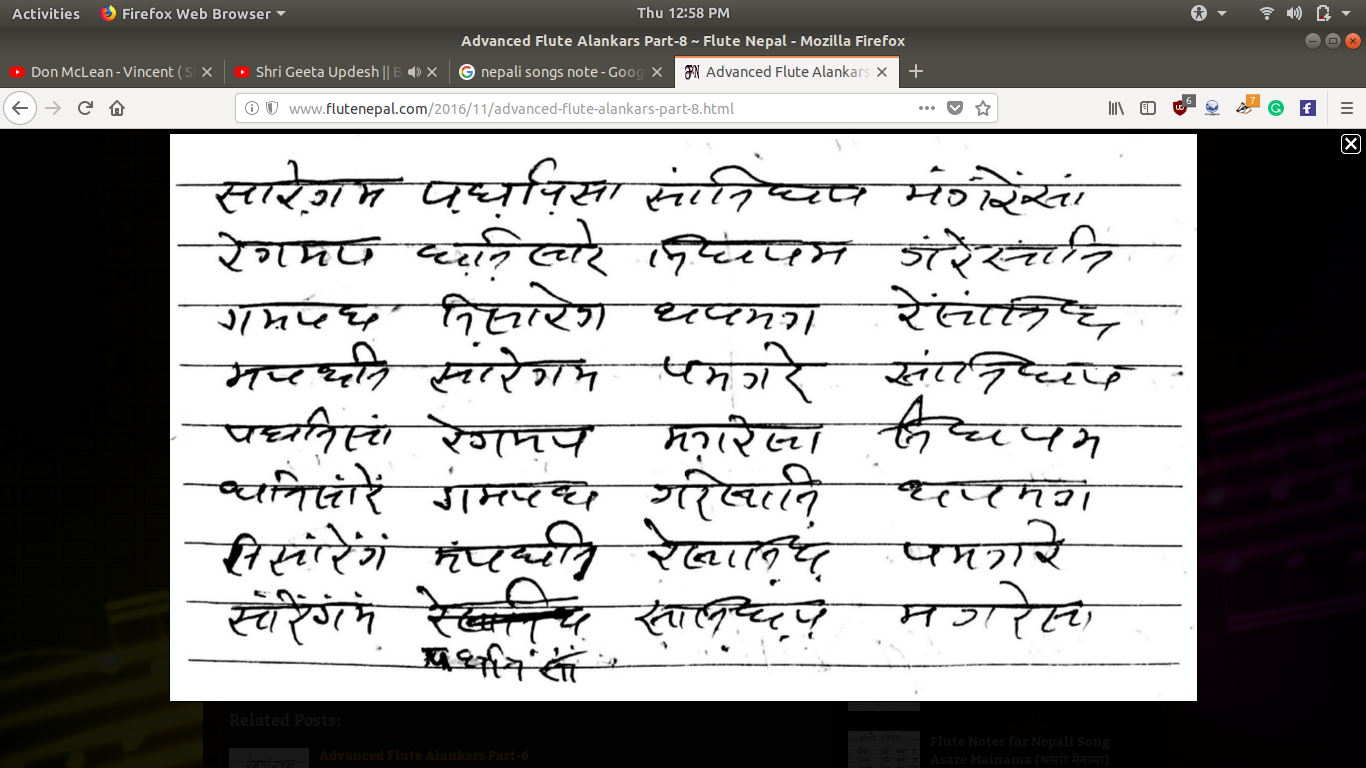 Activities Firefox Web Browser Thu 12:58 PM
Advanced Flute Alankars Part-8 ~ Flute Nepal - Mozilla Firefox
Don McLean - Vincent ( S Shri Geeta Updesh || B nepali songs note - Goog Advanced Flute Alankars
www.flutenepal.com/2016/11/advanced-flute-alankars-part-8.html 6 7
सारेगम प़ध़ऩिसा सांनिधप मंगंरेंसां
रेगमप ध़नि़सारे निधपम गंरेंसांनि
गमपध नि़सारेग धपमग रेंसांनिध
मपधनि सारेगम पमगरे सांनिधप
पधनिसां रेगमप मगरेसा निधपम
धनिसांरें गमपध गरेसानि़ धपमग
निसांरेंगं मपधनि रेसानि़ध़ पमगरे
सांरेंगंमं सानि़ध़प़ मगरेसा
पधनिसां
Related Posts:
Advanced Flute Alankars Part-6
Flute Notes for Nepali Song
Asare Mainama (असारे मैनामा)